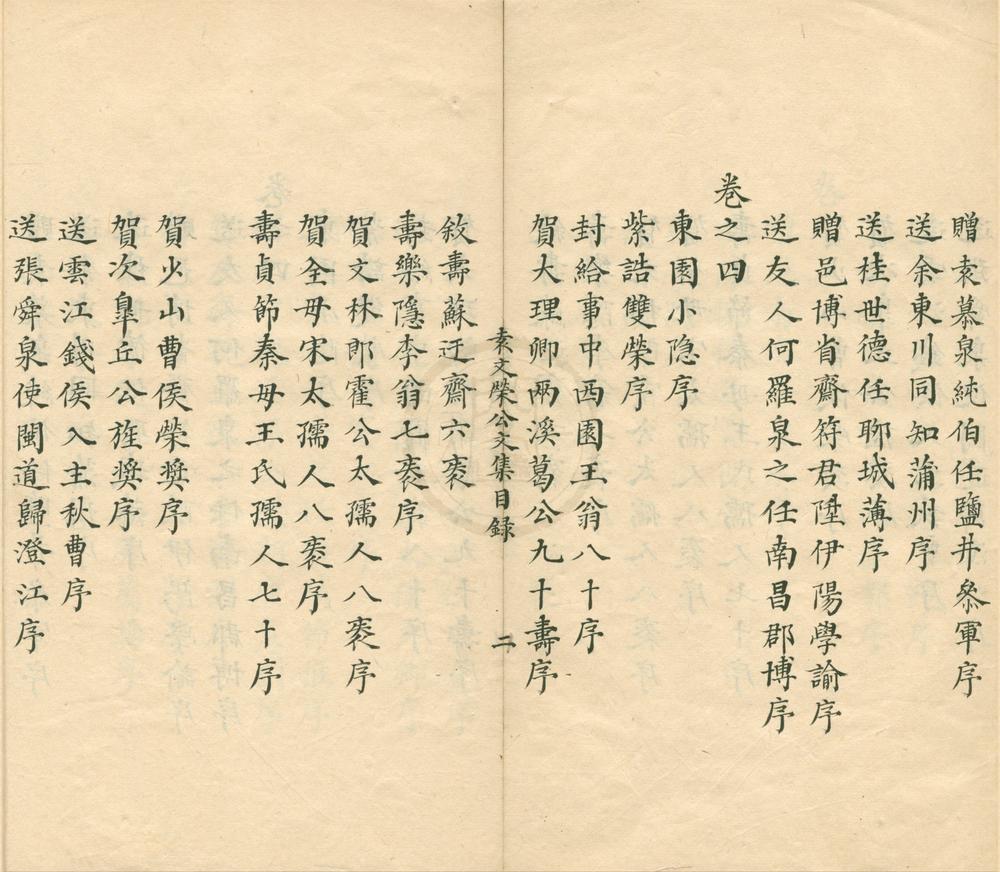 贈袁慕泉純伯任鹽井叅軍序
送余東川同知蒲州序
送桂世德任聊城薄序
贈邑博省齋符君陞伊陽學諭序
送友人何羅泉之任南昌郡博序
卷之四
東園小隐序
紫誥雙榮序
封給事中西園王翁八十序
賀大理卿兩溪葛公九十壽序
袁文榮公文集目錄
二
敘壽蘇迂齋六袠
壽樂隱李翁七袠序
賀文林郎霍公太孺人八袠序
賀全母宋太孺人八袠序
壽貞節秦母王氏孺人七十序
賀少山曹侯榮奬序
賀次臯丘公旌奬序
送雲江錢侯入主秋曹序
送張舜泉使閩道歸澄江序